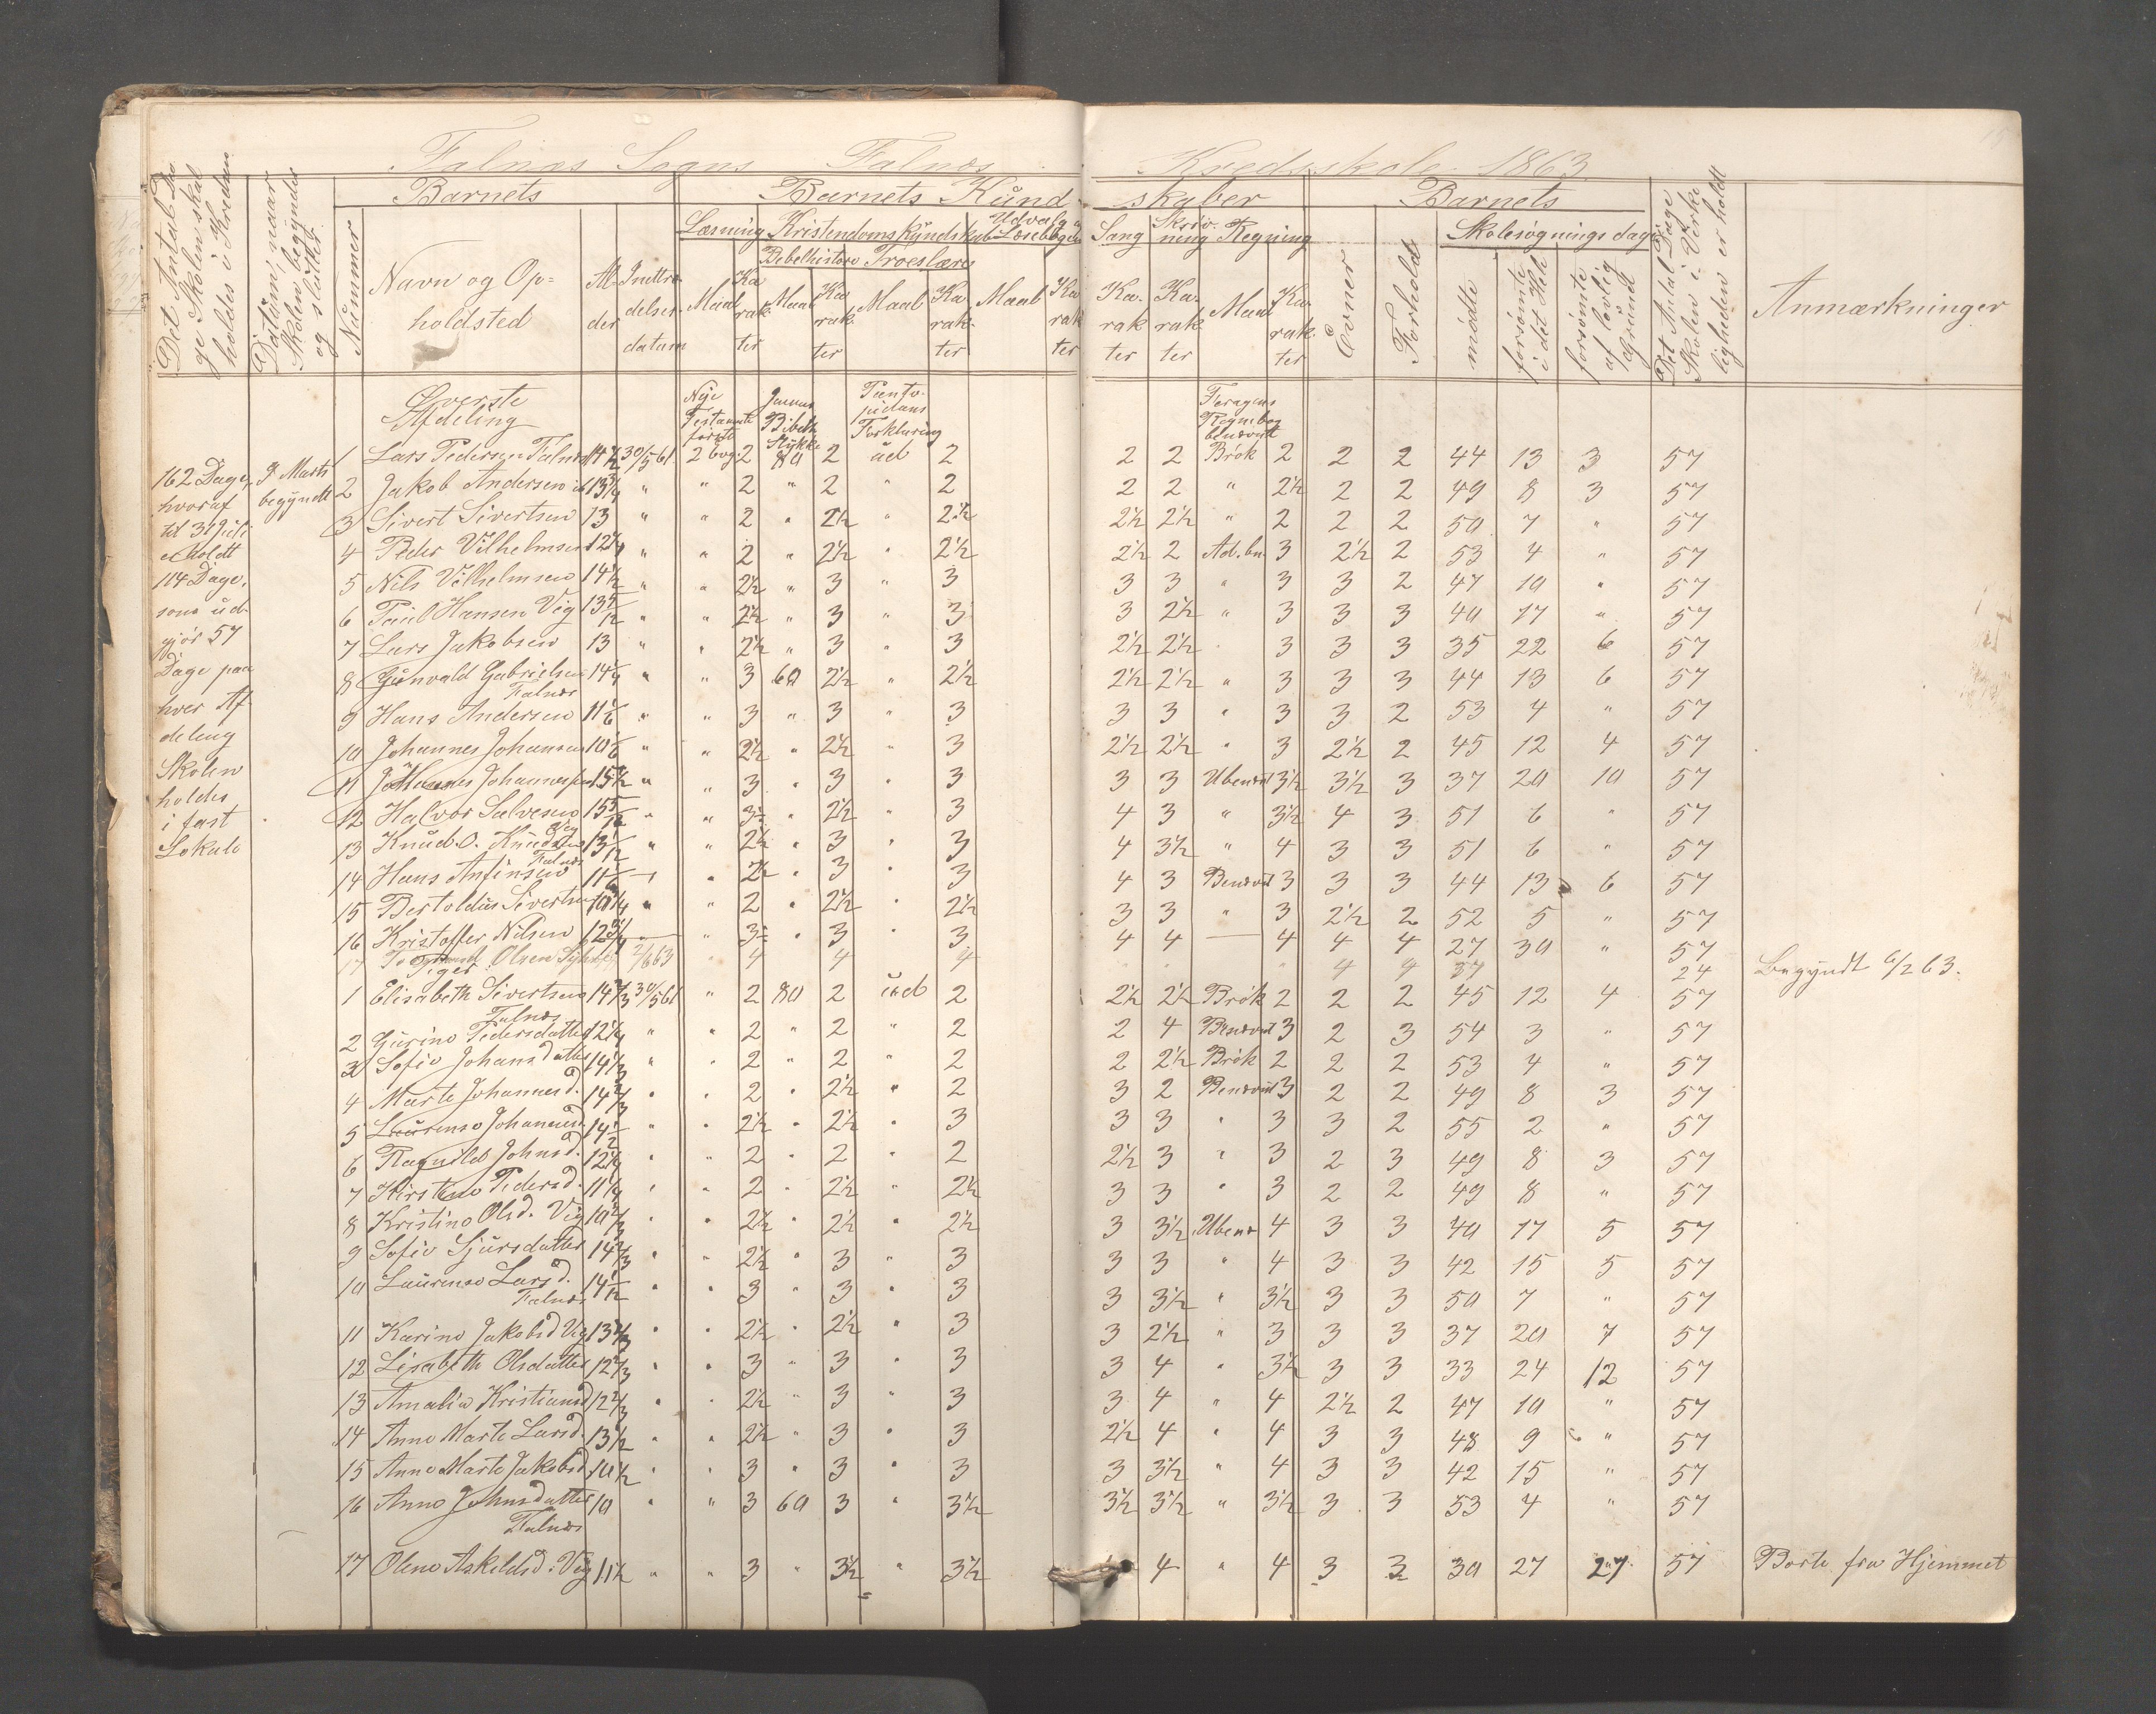 Falnæs Sogns Falnæs Kredsskole 1863
Det Antal Dage Skolen skal holdes i Kredsen
Datum, naar Skolen begyndes og sluttes
Barnets
Barnets Kundskaber
Barnets
Det Antal Dage Skolen i Virkeligheden er holdt
Anmærkninger
Nummer
Navn og Opholdsted
Alder
Indtrædelsesdatum
Læsning Kristendomskundskab Udvalg a Læsebogen
Bibelhistorie Troeslære
Maal Karakter Maal Karakter Maal Karakter Maal Karakter
Sang Skrivning Regning
Karakter Karakter Maal Karakter
Evner Forhold
Skolesøgningsdage
mødte forsømte i det Hele forsømte af lovlig Grund
Øverste Afdeling
Nye Testamente første 2 bog.
Jensens Bibelh. Stykke
Pontoppidans Forklaring
Regnebog benævnt
162 Dage, hvoraf til 31 Juli er holdt 114 Dage, som udgjør 57 Dage paa hver Afdeling
Skolen holdes i fast Lokale
9 Marts begyndt
1 Lars Pedersen Falnæs 30/5 61 2 bog. 2 80 2 ud 2 2 2 Brök 2 2 2 44 13 3 57
2 Jakob Andersen 13 3/4 " " 2 " 2 " 2 2 2 " 2½ 2 2 49 8 3 57
3 Sivert Sivertsen 13 " " 2 " 2½ " 2½ 2½ 2½ " 2 2 2 50 7 " 57
4 Peder Vilhelmsen 12 1/4 " " 2 " 2½ " 2½ 2½ 2 Ad. bn. 3 2½ 2 53 4 " 57
5 Nils Vilhelmsen 14½ " " 2½ " 3 " 3 3 3 " 3 3 2 47 10 " 57
6 Paul Hansen Vig " " 2½ " 3 " 3 3 2½ " 3 3 3 40 17 " 57
7 Lars Jakobsen 13 " " 2½ " 3 " 3 2½ 2½ " 3 3 3 35 22 6 57
8 Gunvald Gabrielsen Falnæs 14 1/4 " " 3 60 2½ " 2½ 2½ 2½ " 3 3 3 44 13 6 57
9 Hans Andersen 11 1/6 " " 3 " 3 " 3 3 3 " 3 3 2 53 4 " 57
10 Johannes Johansen 10 1/6 " " 2½ " 2½ " 3 2½ 2½ " 3 2½ 2 45 12 4 57
11 Johannes Johannesen " " 3 " 3 " 3 3 3 Ubenævnt 3½ 3½ 3 37 20 10 57
12 Halvor Salvesen Vig " " 3 " 2½ " 3 4 3 " 3½ 4 3 51 6 " 57
13 Knud O. Knudsen Falnæs 13 1/12 " " 2½ " 3 " 3 4 3½ " 4 3 3 51 6 " 57
14 Hans Anfinsen " 2½ " 3 " 3 4 3 Benævnt 3 3 3 44 13 6 57
15 Bertoldus Sivertsen 10 1/4 " " 2 " 2½ " 2½ 3 3 " 3 2½ 2 52 5 " 57
16 Kristoffer Nilsen 12 3/4 " 3 " 3 " 3 4 4 — 4 4 4 27 30 " 57
17 Olsen 2/6 63 " 4 4 4 4 4 24 Begyndt 6/2 63.
Piger
1 Elisabeth Sivertsen Falnæs 14 2/3 30/5 61 " 2 80 2 ud 2 2½ 2½ Brök 2 2 2 45 12 4 57
2 Gurine Pedersdatter 12 1/4 " " 2 " 2 " 2 2 4 Benævnt 3 2 3 54 3 " 57
3 Sofie Johansdatter 14 1/3 " " 2 " 2 " 2 2 2½ Brök 2 2 2 53 4 " 57
4 Marte Johannesd. 14 2/3 " " 2 " 2½ " 2 3 2 Benævnt 3 2 2 49 8 3 57
5 Laurense Johannesd. 14 1/2 " " 2½ " 2½ " 3 3 3 " 3 3 2 55 2 " 57
6 Ragnild Johnsd. 12 1/4 " " 2 " 2 " 2 2½ 3 " 3 2 3 49 8 3 57
7 Kirstine Pedersd. 11 1/4 " " 2 " 2½ " 2½ 3 3 " 3 2 2 49 8 " 57
8 Kristine Olsd. Vig 10 2/3 " " 2½ " 2½ " 2½ 3 3½ Ubenæ 4 3 3 40 17 5 57
9 Sofie Sjursdatter 14 2/3 " " 2½ " 3 " 3 3 3 " 4 3 3 42 15 5 57
10 Laurense Larsd. Falnæs 14 1/12 " " 3 " 3 " 3 3 3½ " 3½ 3 3 50 7 " 57
11 Karine Jakobsd Vig 13 2/3 " " 2½ " 2½ " 3 3 2½ " 3 3 3 37 20 7 57
12 Lisabeth Olsdatter 12 2/3 " " 3 " 3 " 3 3 4 " 3½ 3 3 33 24 12 57
13 Amalia Kristiansd 12 2/3 " " 2½ " 3 " 3 3 4 " 4 2½ 2 47 10 " 57
14 Anne Marte Larsd. 13½ " " 2½ " 3 " 3 2½ 4 " 4 3 3 48 9 " 57
15 Anne Marte Jakobsd 10½ " " 3 " 3 " 3 3 3½ " 4 3 3 42 15 " 57
16 Anne Johnsdatter Falnæs 10 " " 3 60 3 " 3½ 3½ 3½ " 3½ 3 3 53 4 " 57
17 Olene Askildsd. Vig 11½ " " 3 " 3½ " 3½ 4 " 4 3 3 30 27 27 57 Borte fra Hjemmet